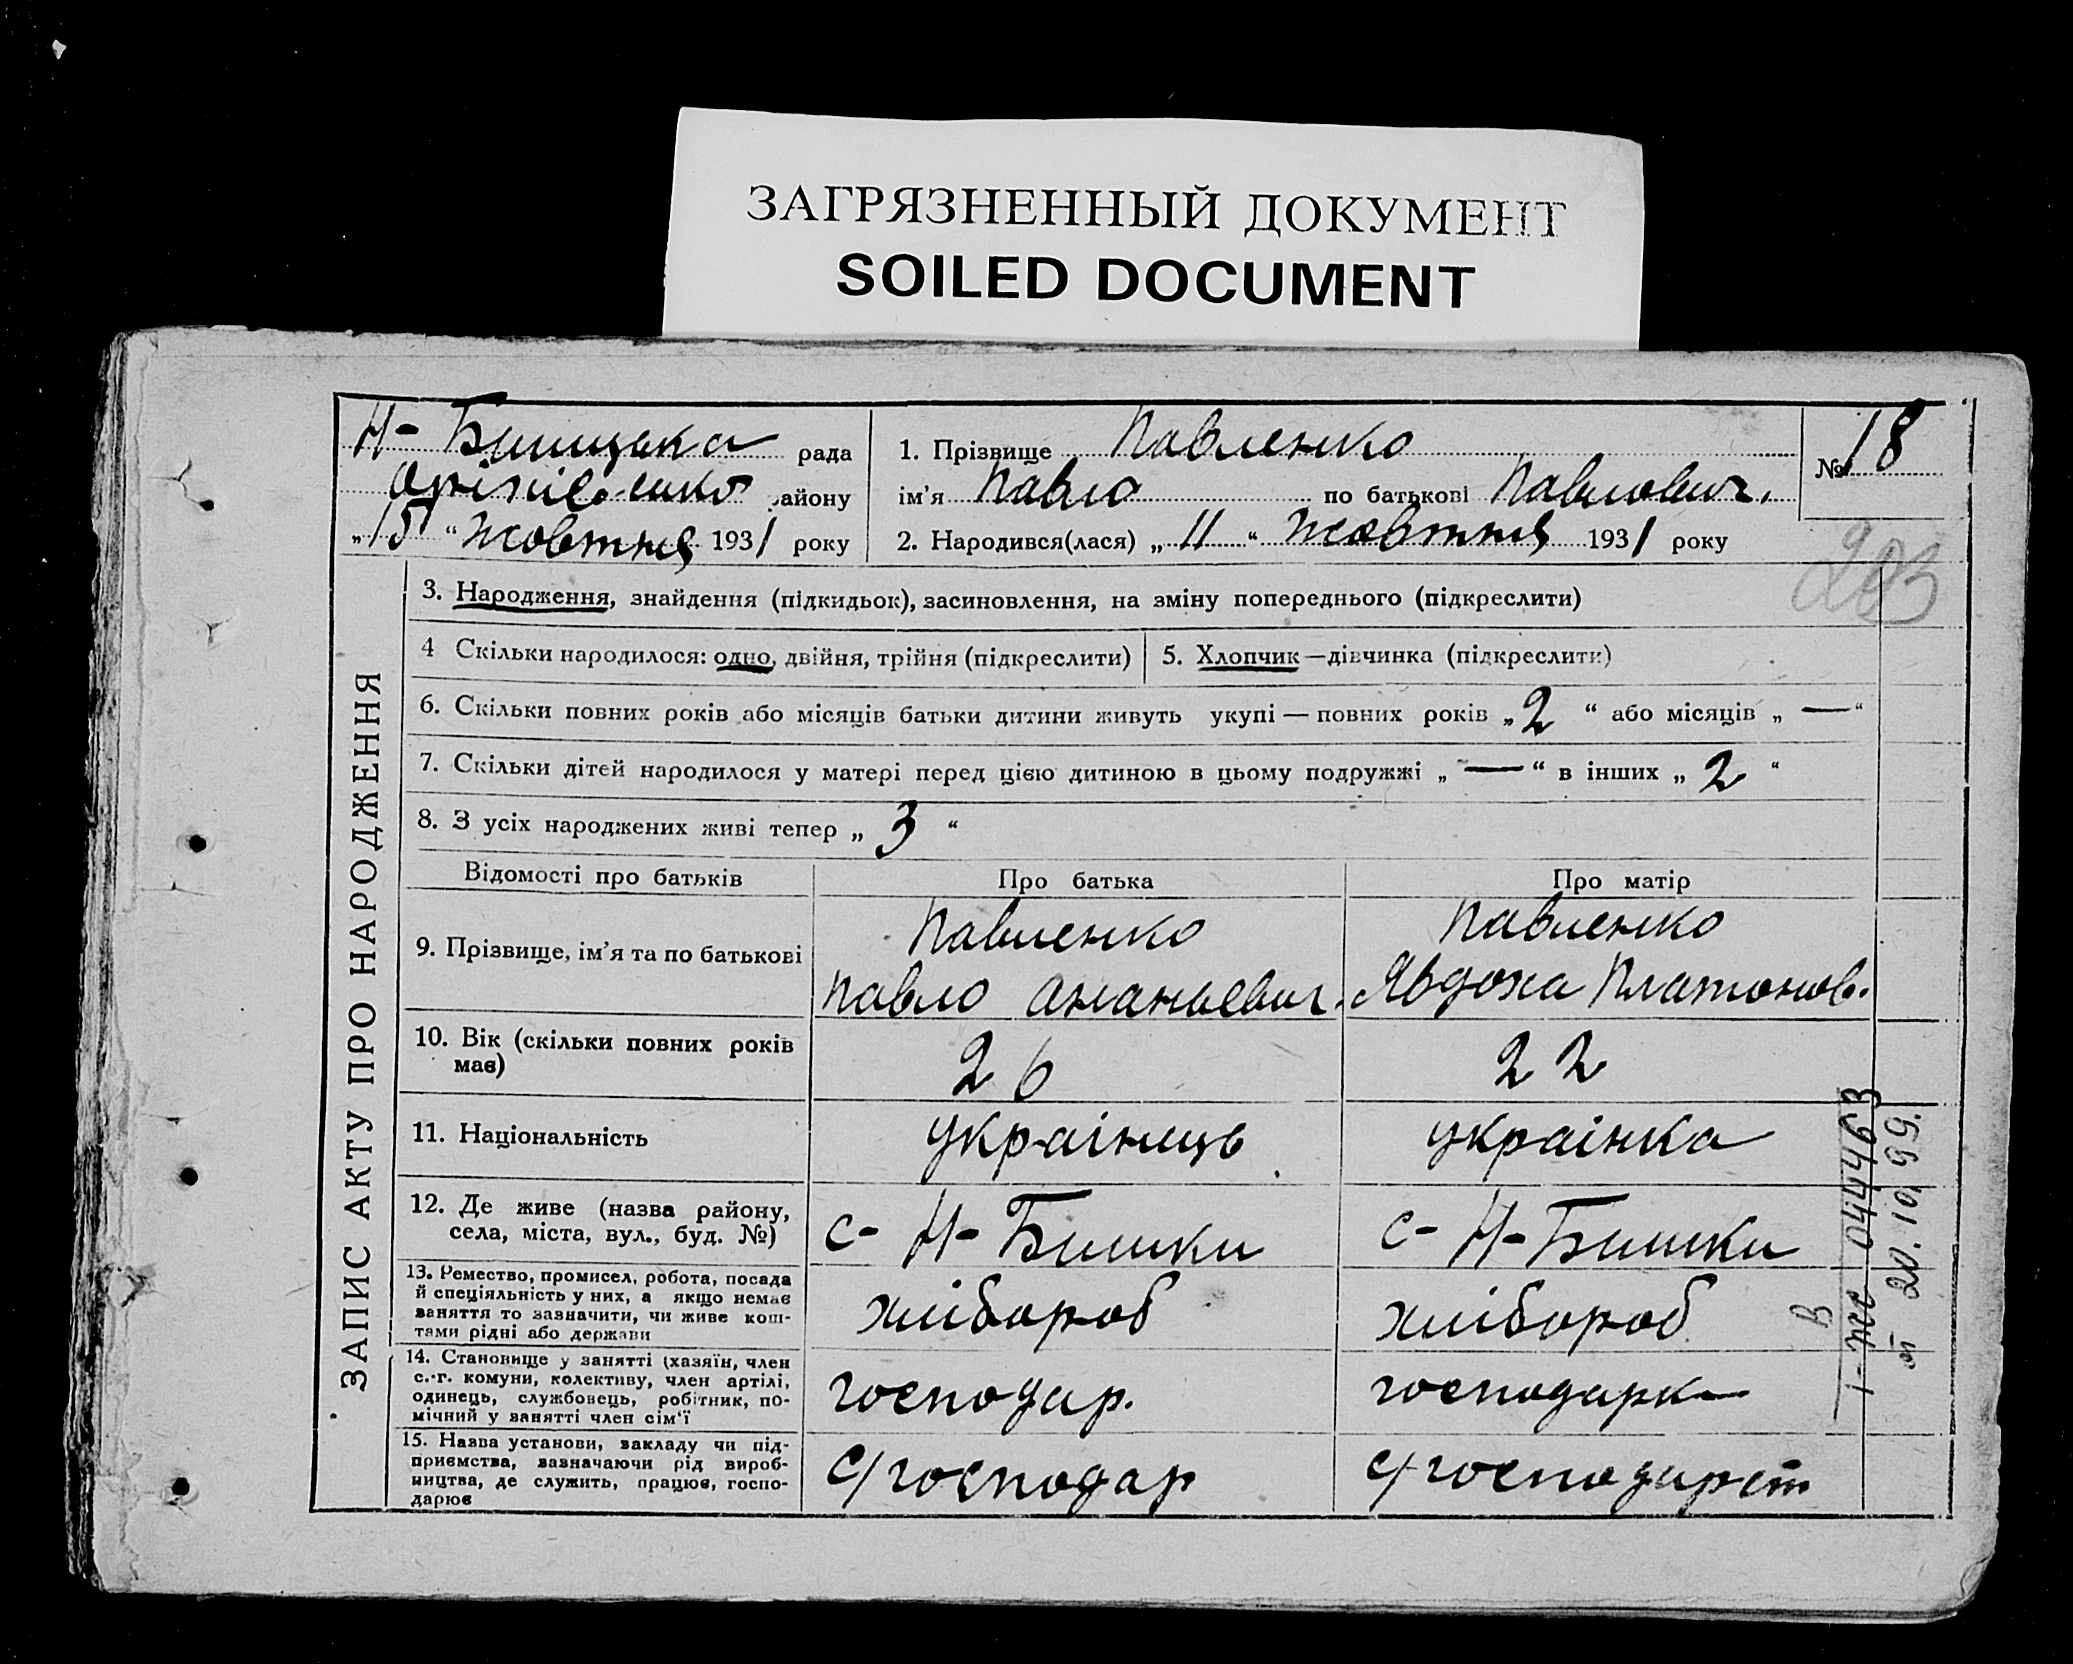 ЗАГРЯЗНЕННЫЙ ДОКУМЕНТ
SOILED DOCUMENT
ЗАПИС АКТУ ПРО НАРОДЖЕННЯ
Н- Бишцька рада
району
„15“ Жовтня 1931 року
1. Прізвище Павленко
ім’я Павло по батькові Павлович.
2. Народився(лася) „11“ Жовтня 1931 року
№ 18
203
3. Народження, знайдення (підкидьок), засиновлення, на зміну попереднього (підкреслити)
4 Скільки народилося: одно, двійня, трійня (підкреслити)
5. Хлопчик—дівчинка (підкреслити)
6. Скільки повних років або місяців батьки дитини живуть укупі — повних років „2“ або місяців „—“
7. Скільки дітей народилося у матері перед цією дитиною в цьому подружжі „—“ в інших „2“
8. З усіх народжених живі тепер „3“
Відомості про батьків Про батька Про матір
9. Прізвище, ім’я та по батькові
Павленко
Павло Ананьевич.
Павленко
Явдоха Платонов.
10. Вік (скільки повних років
має)
26
22
11. Національність
українець
українка
12. Де живе (назва району,
села, міста, вул., буд. №)
с- Н- Бишки
с- Н- Бишки
13. Ремество, промисел, робота, посада
й спеціяльність у них, а якщо немає
заняття то зазначити, чи живе кош-
тами рідні або держави
хлібороб
хлібороб
14. Становище у занятті (хазяїн, член
с.-г. комуни, колективу, член артілі,
одинець, службовець, робітник, по-
мічний у занятті член сім’ї
господар.
господарка
15. Назва установи, закладу чи під-
приємства, зазначаючи рід вироб-
ництва, де служить, працює, госпо-
дарює
с/господар
с/господарст
В
I-ЖС 0444463
от 20.10.99.